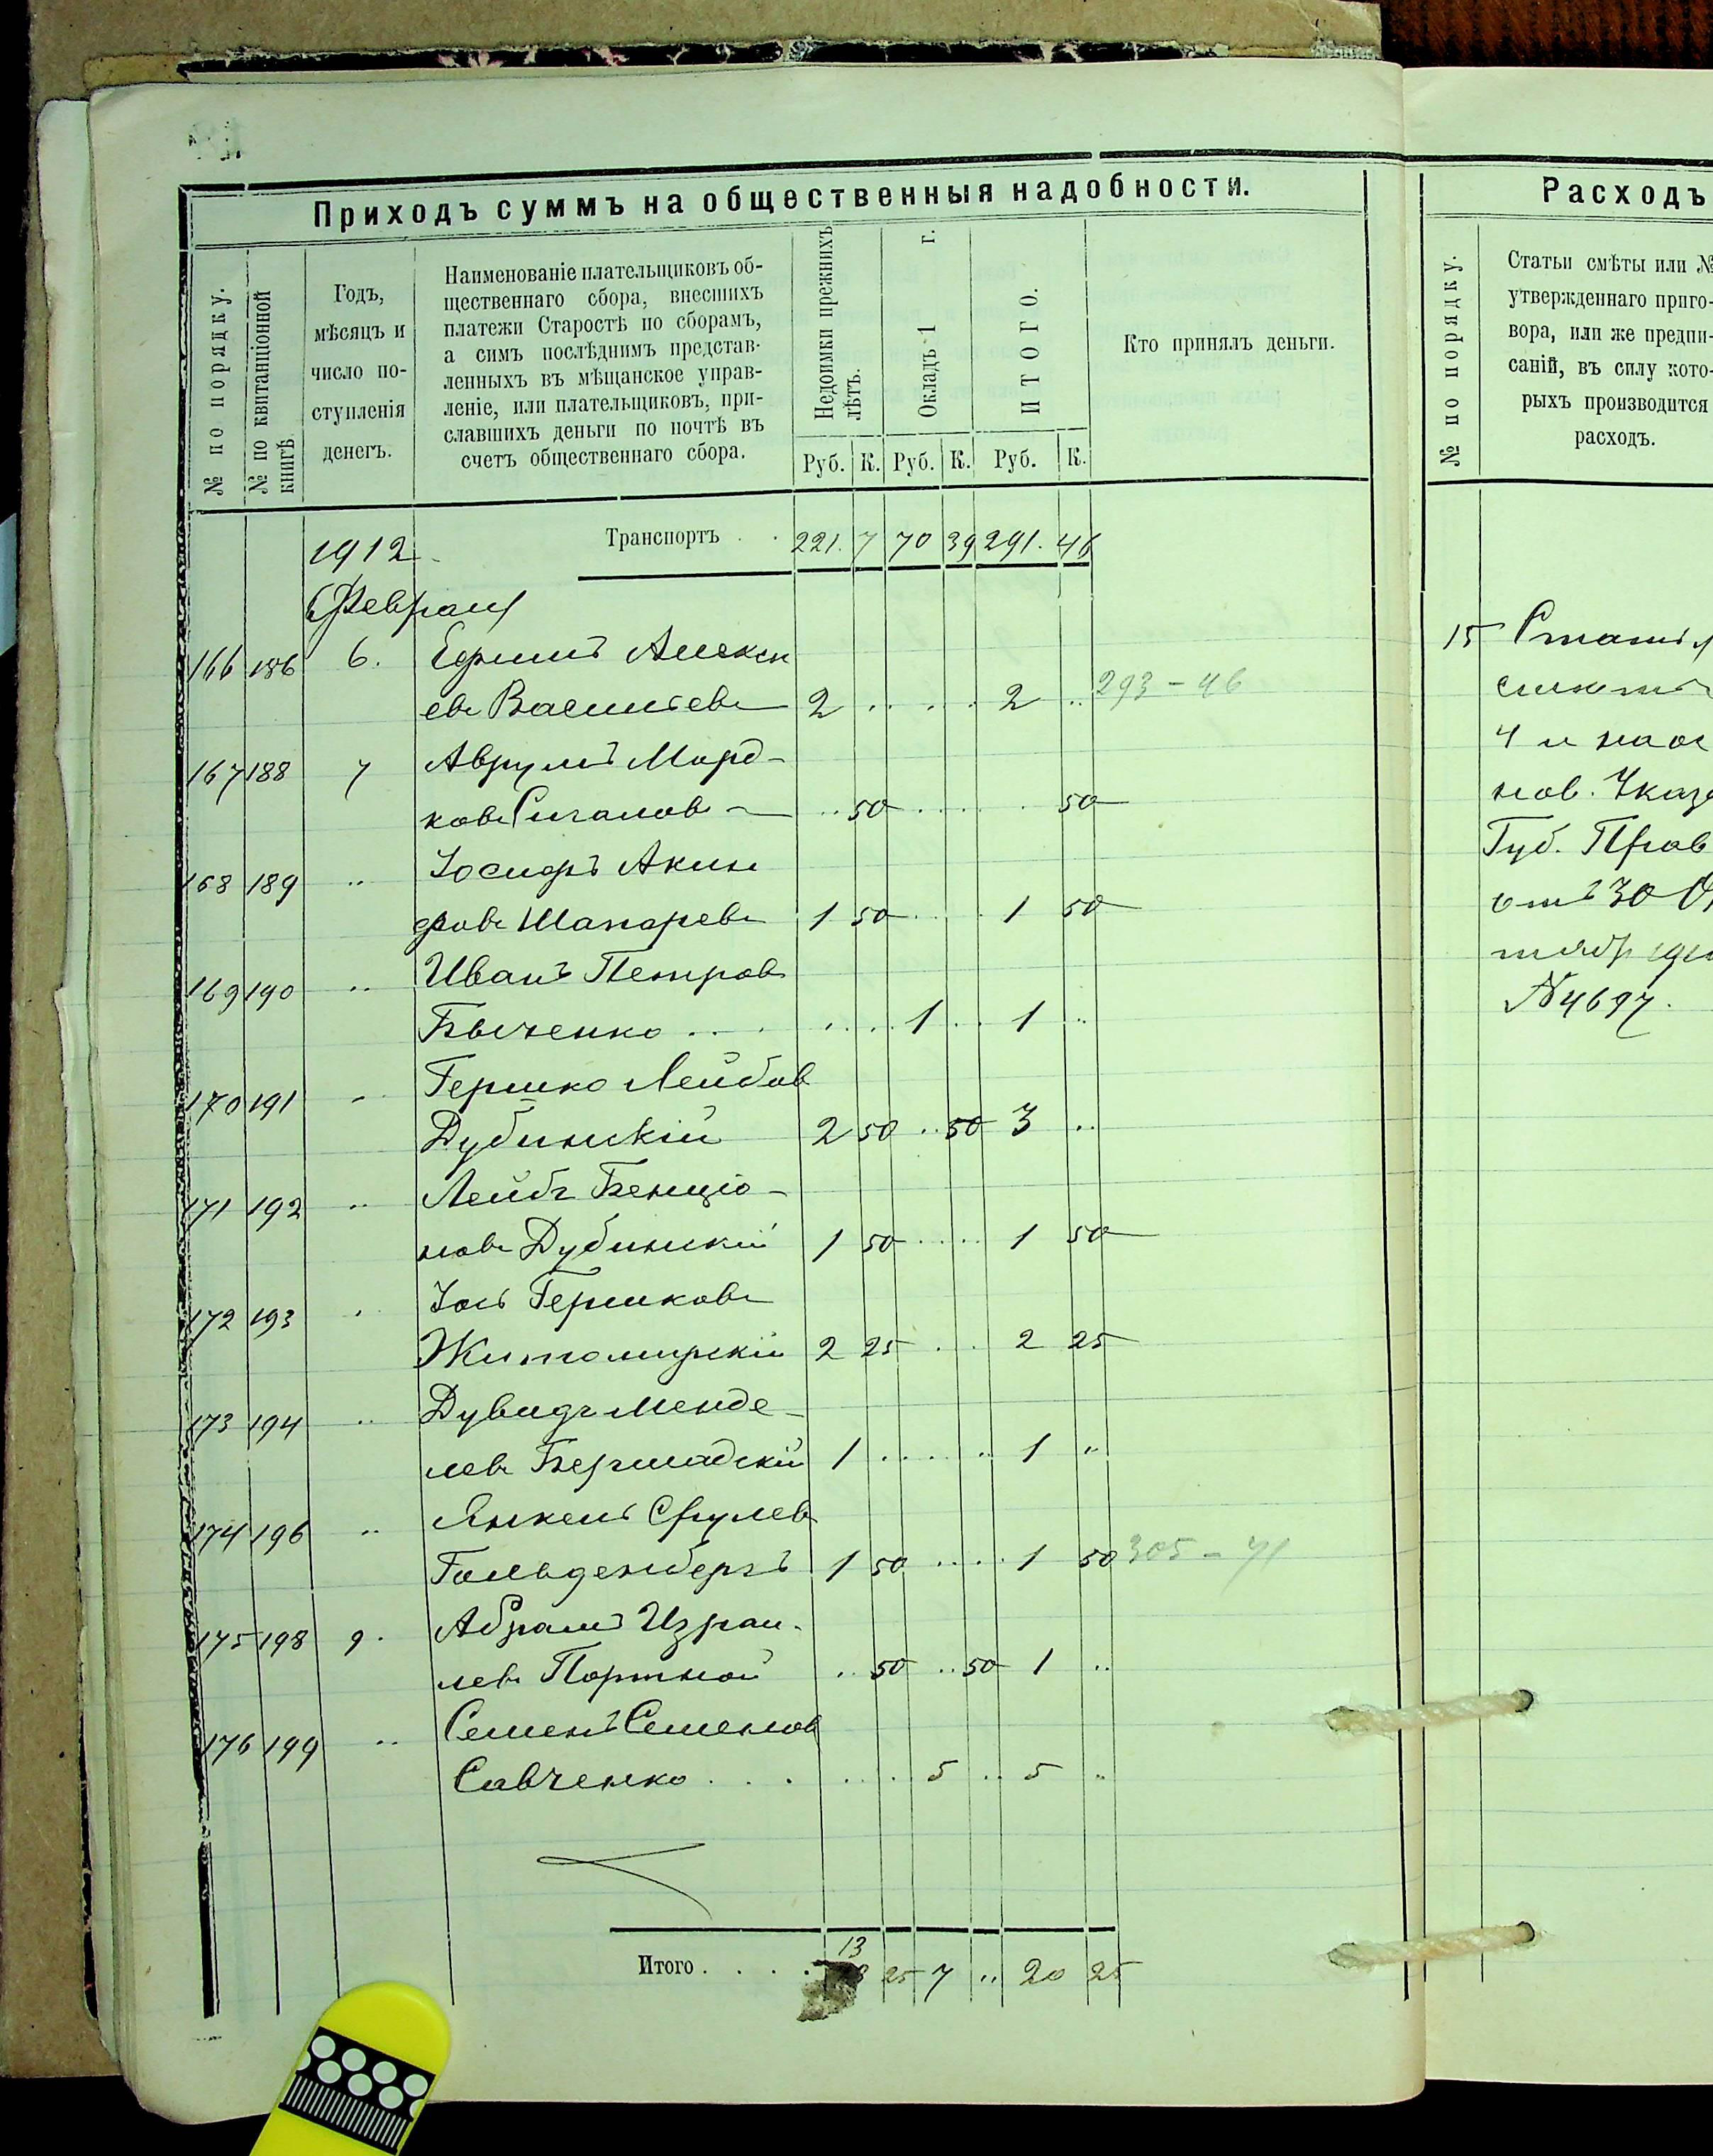 Приходъ суммъ на общественныя надобности.
№ по порядку.
№ по квитанціонной книгѣ.
Годъ,
мѣсяцъ и
число по-
ступленія
денегъ.
Наименованіе плательщиковъ об-
щественнаго сбора, внесшихъ
платежи Старостѣ по сборамъ,
а симъ послѣднимъ представ-
ленныхъ въ мѣщанское управ-
леніе, или плательщиковъ, при-
славшихъ деньги по почтѣ въ
счетъ общественнаго сбора.
Недоимки прежнихъ лѣтъ.
Окладъ 1 г.
ИТОГО.
Кто принялъ деньги.
Руб. К. Руб. К. Руб. К.
1912 Транспортъ . . 221. 7 70 39 291. 46
Февраля
166 186 6. Ефимъ Алексѣ
евъ Васильевъ 2 . . . . 2 .. 293-46
167 188 7 Аврумъ Морд-
ковъ Сигаловъ .. 50 . . . . 50
168 189 .. Іосифъ Акин
фовъ Шапаревъ 1 50 . . . 1 50
169 190 .. Иванъ Петровъ
Быченко . . . . . . . 1 .. 1 ..
170 191 .. Гершко Лейбов
Дубинскій 2 50 .. 50 3 ..
171 192 .. Лейбъ Бенціо-
новъ Дубинскій 1 50 . . . . 1 50
172 193 . Іось Гершковъ
Житомирскій 2 25 . . . 2 25
173 194 .. Дувидъ Менде-
левъ Бершадскій 1 . . . . .. 1 ..
174 196 .. Янкель Срулев
Гольденбергъ 1 50 . . . . 1 50 305-71
175 198 9. Абрамъ Израи-
левъ Портной .. 50 .. 50 1 ..
176 199 .. Семенъ Семенов
Савченко . . . . . . 5 .. 5 ..
13
Итого . . . . 25 7 .. 20 25
Расходъ
№ по порядку.
Статьи смѣты или №
утвержденнаго приго-
вора, или же предпи-
саній, въ силу кото-
рыхъ производится
расходъ.
15 Статья
смѣты
4 и
нов. Указ
Губ. Прав
отъ 30
тябр
№ 4697.